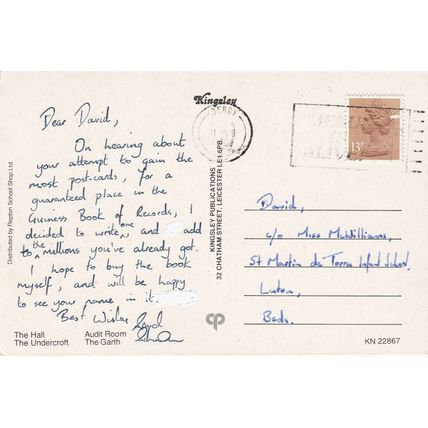 Dear David,
On hearing about
your attempt to gain the
most postcards, for a
guaranteed place in the
Guiness Book of Records, I
decided to write one and add
to the millions you've already got.
I hope to buy the book
myself, and will be happy
to see your name in it.
Best Wishes
The Hall
The Undercroft
Audit Room
The Garth
Distributed by Repton School Shop Ltd
Kingsley
KINGSLEY PUBLICATIONS
32 CHATHAM STREET, LEICESTER LE1 6PB.
cp
DERBY
13P
David,
c/o Miss McWilliams,
St Martin de Porres Infant School,
Luton,
Beds.
KN 22867